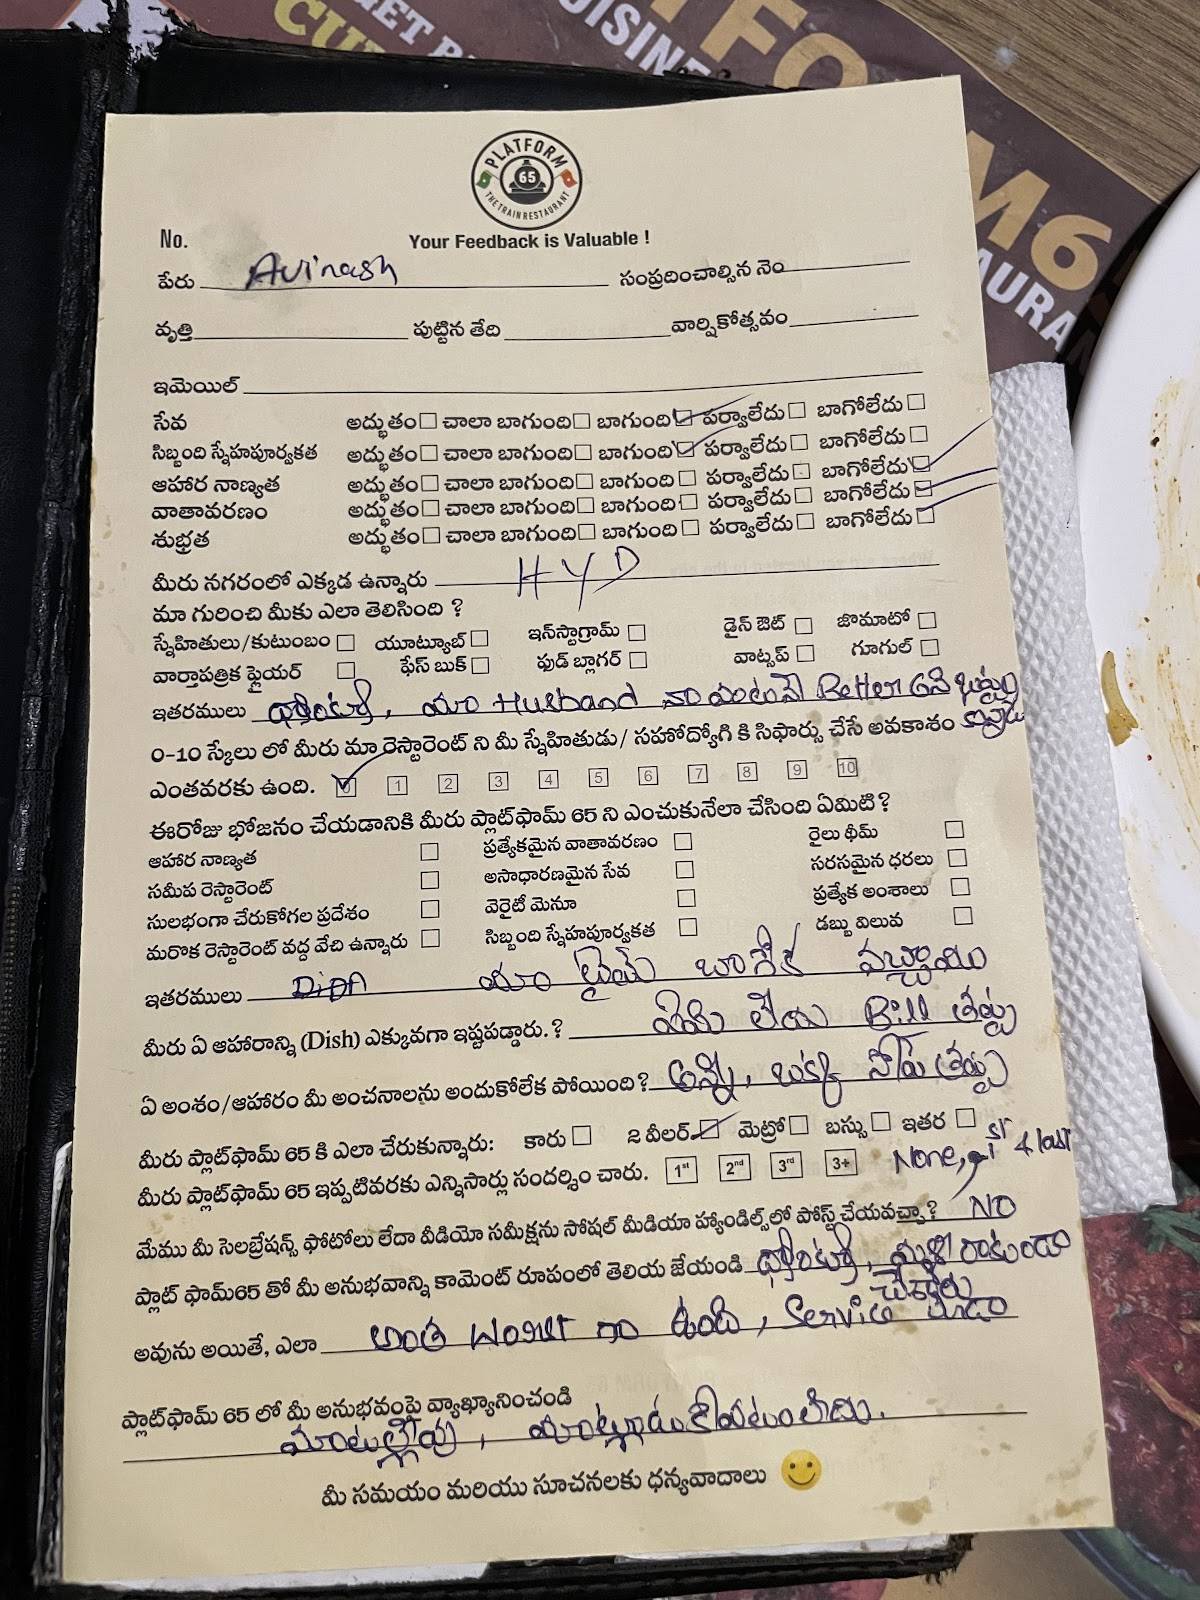 GET
CUI
CUISINE
TFO
M6
AURA
PLATFORM
65
THE TRAIN RESTAURANT
No. Your Feedback is Valuable !
పేరు Avinash సంప్రదించాల్సిన నెం
వృత్తి పుట్టిన తేది వార్షికోత్సవం
ఇమెయిల్
సేవ అద్భుతం చాలా బాగుంది బాగుంది పర్వాలేదు బాగోలేదు
సిబ్బంది స్నేహపూర్వకత అద్భుతం చాలా బాగుంది బాగుంది పర్వాలేదు బాగోలేదు
ఆహార నాణ్యత అద్భుతం చాలా బాగుంది బాగుంది పర్వాలేదు బాగోలేదు
వాతావరణం అద్భుతం చాలా బాగుంది బాగుంది పర్వాలేదు బాగోలేదు
శుభ్రత అద్భుతం చాలా బాగుంది బాగుంది పర్వాలేదు బాగోలేదు
మీరు నగరంలో ఎక్కడ ఉన్నారు HYD
మా గురించి మీకు ఎలా తెలిసింది ?
స్నేహితులు/కుటుంబం యూట్యూబ్ ఇన్‌స్టాగ్రామ్ డైన్ ఔట్ జొమాటో
వార్తాపత్రిక ఫ్లైయర్ ఫేస్ బుక్ ఫుడ్ బ్లాగర్ వాట్సప్ గూగుల్
ఇతరములు మా Husband Better
0-10 స్కేలు లో మీరు మా రెస్టారెంట్ ని మీ స్నేహితుడు/ సహోద్యోగి కి సిఫార్సు చేసే అవకాశం
ఎంతవరకు ఉంది. 0 1 2 3 4 5 6 7 8 9 10
ఈరోజు భోజనం చేయడానికి మీరు ప్లాట్‌ఫామ్ 65 ని ఎంచుకునేలా చేసింది ఏమిటి?
ఆహార నాణ్యత ప్రత్యేకమైన వాతావరణం రైలు థీమ్
సమీప రెస్టారెంట్ అసాధారణమైన సేవ సరసమైన ధరలు
సులభంగా చేరుకోగల ప్రదేశం వెరైటీ మెనూ ప్రత్యేక అంశాలు
మరొక రెస్టారెంట్ వద్ద వేచి ఉన్నారు సిబ్బంది స్నేహపూర్వకత డబ్బు విలువ
ఇతరములు మా టైమ్ బాగోక వచ్చాము
మీరు ఏ ఆహారాన్ని (Dish) ఎక్కువగా ఇష్టపడ్డారు.? ఏమి లేదు Bill తప్ప
ఏ అంశం/ఆహారం మీ అంచనాలను అందుకోలేక పోయింది? అన్ని, ఒక్క సోప్ తప్ప
మీరు ప్లాట్‌ఫామ్ 65 కి ఎలా చేరుకున్నారు: కారు 2 వీలర్ మెట్రో బస్సు ఇతర
మీరు ప్లాట్‌ఫామ్ 65 ఇప్పటివరకు ఎన్నిసార్లు సందర్శిం చారు. 1st 2nd 3rd 3+ None, 1st & last
మేము మీ సెలబ్రేషన్స్ ఫోటోలు లేదా వీడియో సమీక్షను సోషల్ మీడియా హ్యాండిల్స్‌లో పోస్ట్ చేయవచ్చా? NO
ప్లాట్ ఫామ్65 తో మీ అనుభవాన్ని కామెంట్ రూపంలో తెలియ జేయండి మళ్లీ రాకుండా
చేశారు
అవును అయితే, ఎలా అంత worst గా ఉంది, Service కూడా
ప్లాట్‌ఫామ్ 65 లో మీ అనుభవంపై వ్యాఖ్యానించండి
మాటల్లేవు, మాట్లాడుకోవటంలేదు.
మీ సమయం మరియు సూచనలకు ధన్యవాదాలు